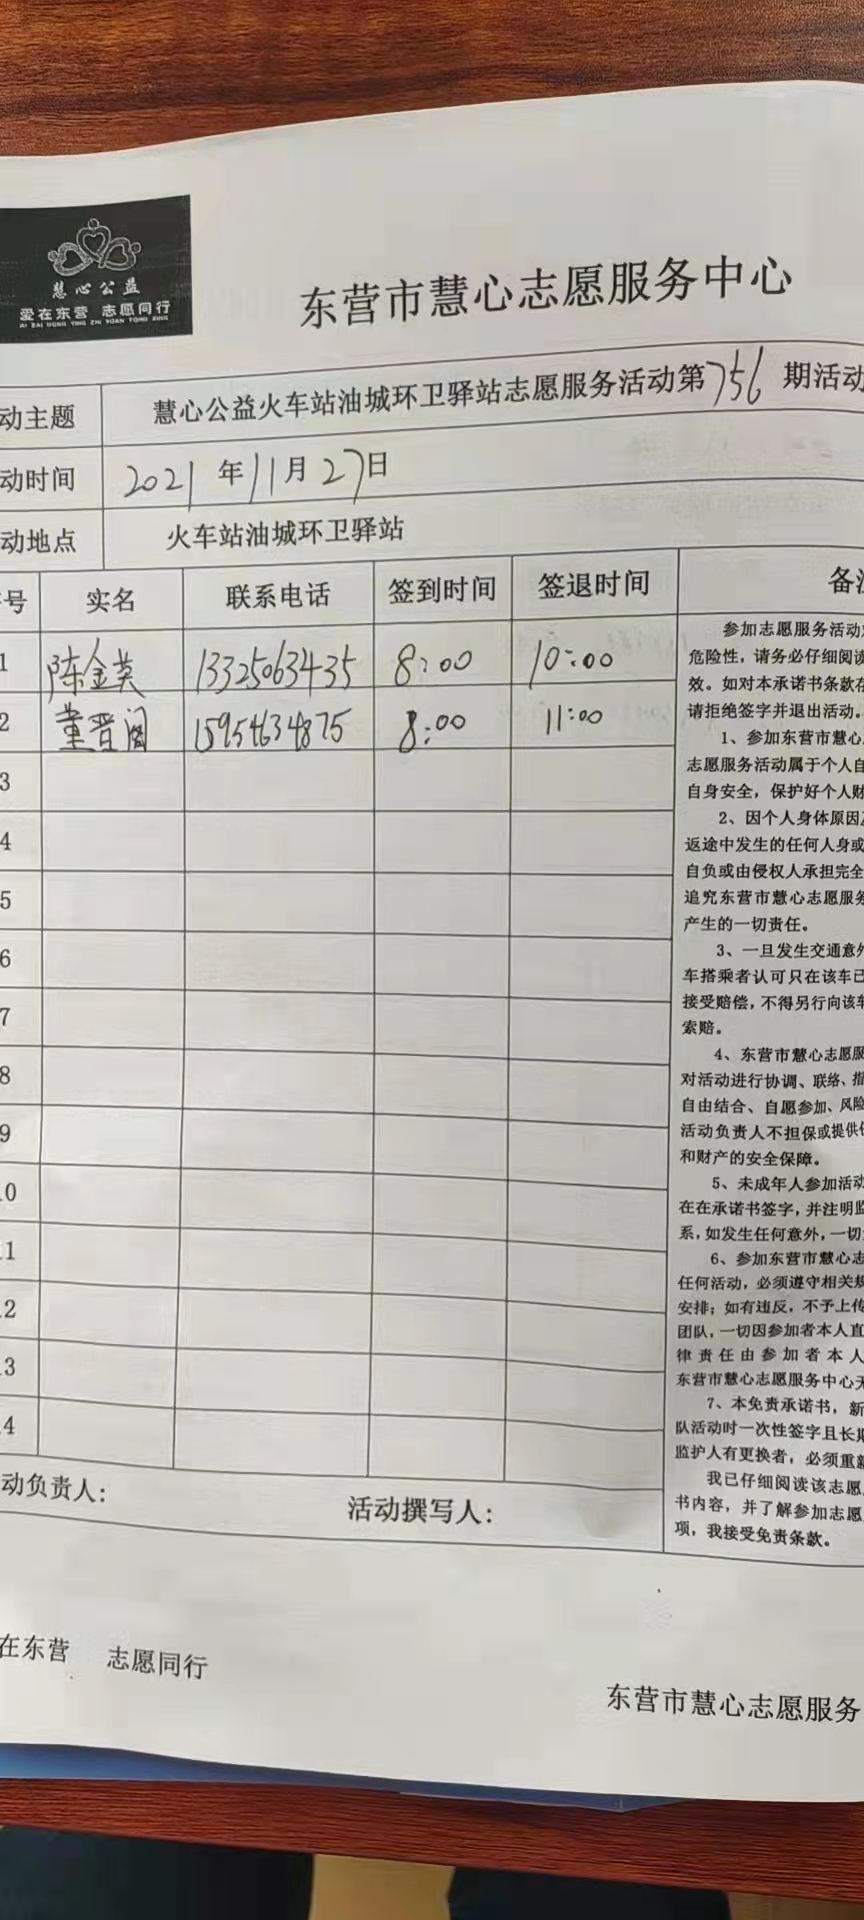 慧心公益
爱在东营 志愿同行
AI ZAI DONG YING ZHI YUAN TONG XING
东营市慧心志愿服务中心
动主题 慧心公益火车站油城环卫驿站志愿服务活动第756期活动
动时间 2021年11月27日
动地点 火车站油城环卫驿站
号 实名 联系电话 签到时间 签退时间 备注
1 陈金英 13325063435 8:00 10:00
2 董晋阁 15954634875 8:00 11:00
3
4
5
6
7
8
9
10
11
12
13
14
参加志愿服务活动
危险性，请务必仔细阅读
效。如对本承诺书条款在
请拒绝签字并退出活动。
1、参加东营市慧心
志愿服务活动属于个人自
自身安全，保护好个人财
2、因个人身体原因及
返途中发生的任何人身或
自负或由侵权人承担完全
追究东营市慧心志愿服务
产生的一切责任。
3、一旦发生交通意外
车搭乘者认可只在该车已
接受赔偿，不得另行向该车
索赔。
4、东营市慧心志愿服
对活动进行协调、联络、指
自由结合、自愿参加、风险
活动负责人不担保或提供
和财产的安全保障。
5、未成年人参加活动
在在承诺书签字，并注明监
系，如发生任何意外，一切
6、参加东营市慧心志
任何活动，必须遵守相关规
安排；如有违反，不予上传
团队，一切因参加者本人直
律责任由参加者本人
东营市慧心志愿服务中心无
7、本免责承诺书，新
队活动时一次性签字且长期
监护人有更换者，必须重新
我已仔细阅读该志愿
书内容，并了解参加志愿
项，我接受免责条款。
动负责人： 活动撰写人：
在东营 志愿同行
东营市慧心志愿服务